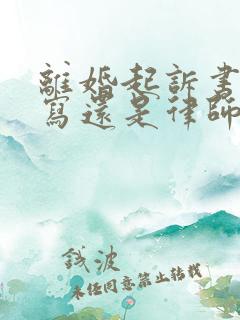 離婚起訴書
寫還是律師
錢波
未經同意禁止轉載